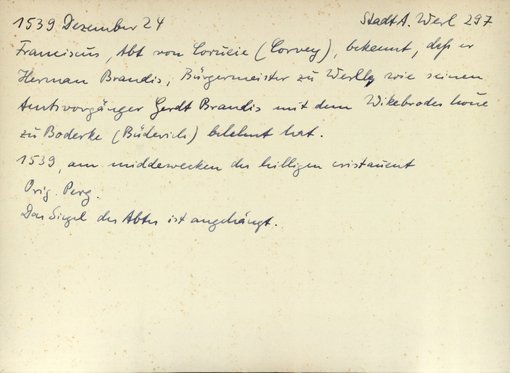 1539 Dezember 24 StadtA. Werl 297
Franciscus, Abt von Corueie (Corvey), bekennt, daß er
Herman Brandis, Bürgermeister zu Werll, wie seinen
Amtsvorgänger Gerdt Brandis mit dem Wikebrodes houe
zu Boderke (Büderich) belehnt hat.
1539, am middewecken des hilligen cristauent
Orig. Perg.
Das Siegel des Abtes ist angehängt.